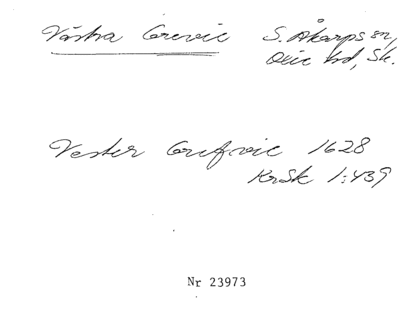 Västra Grevie S. Åkarps sn,
Oxie hd, Sk.
Vester Grefwie 1628
KrSk 1:439
Nr 23973